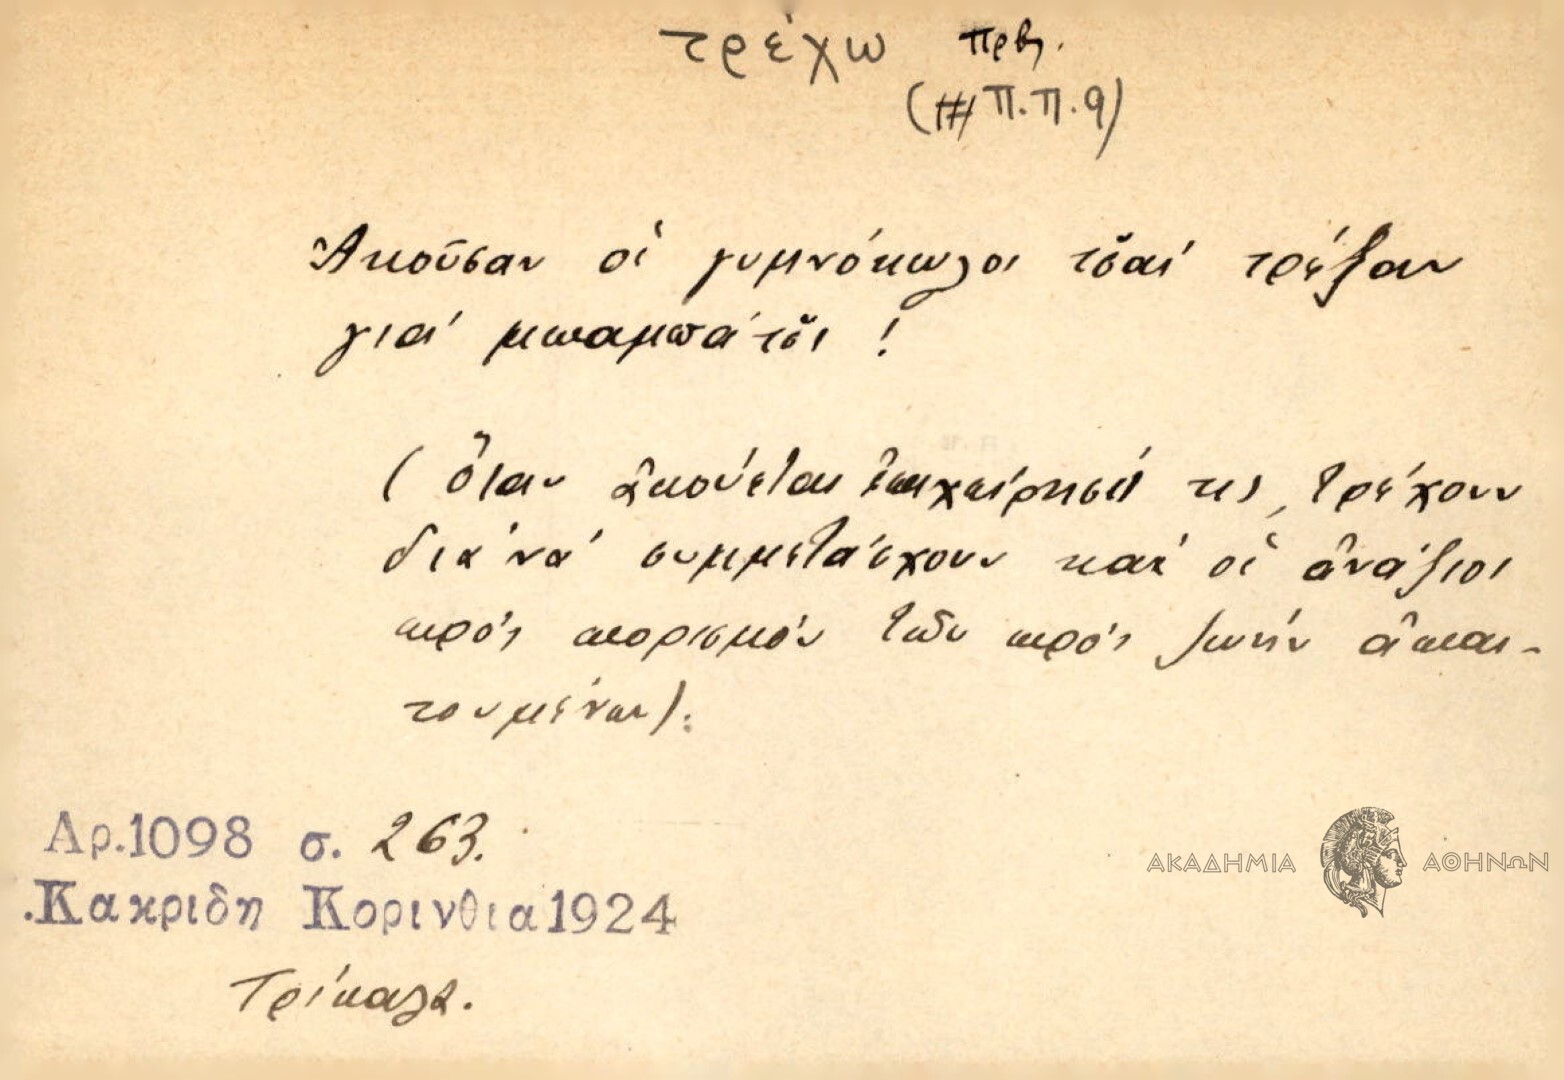 τρέχω πρβ.
(# Π.Π.9)
Ἀκοῦσαν οἱ γυμνόκωλοι τσ̆αί τρέξαν
γιά μπαμπάτσ̆ι !
(ὅταν ἀκούεται ἐπιχείρησίς τις, τρέχουν
διά νά συμμετάσχουν καί οἱ ἀνάξιοι
πρός πορισμόν τῶν πρός ζωήν ἀπαι-
τουμένων).
Αρ.1098 σ. 263.
.Κακριδη Κορινθια1924
Τρίκαλα.
ΑΚΑΔΗΜΙΑ ΑΘΗΝΩΝ